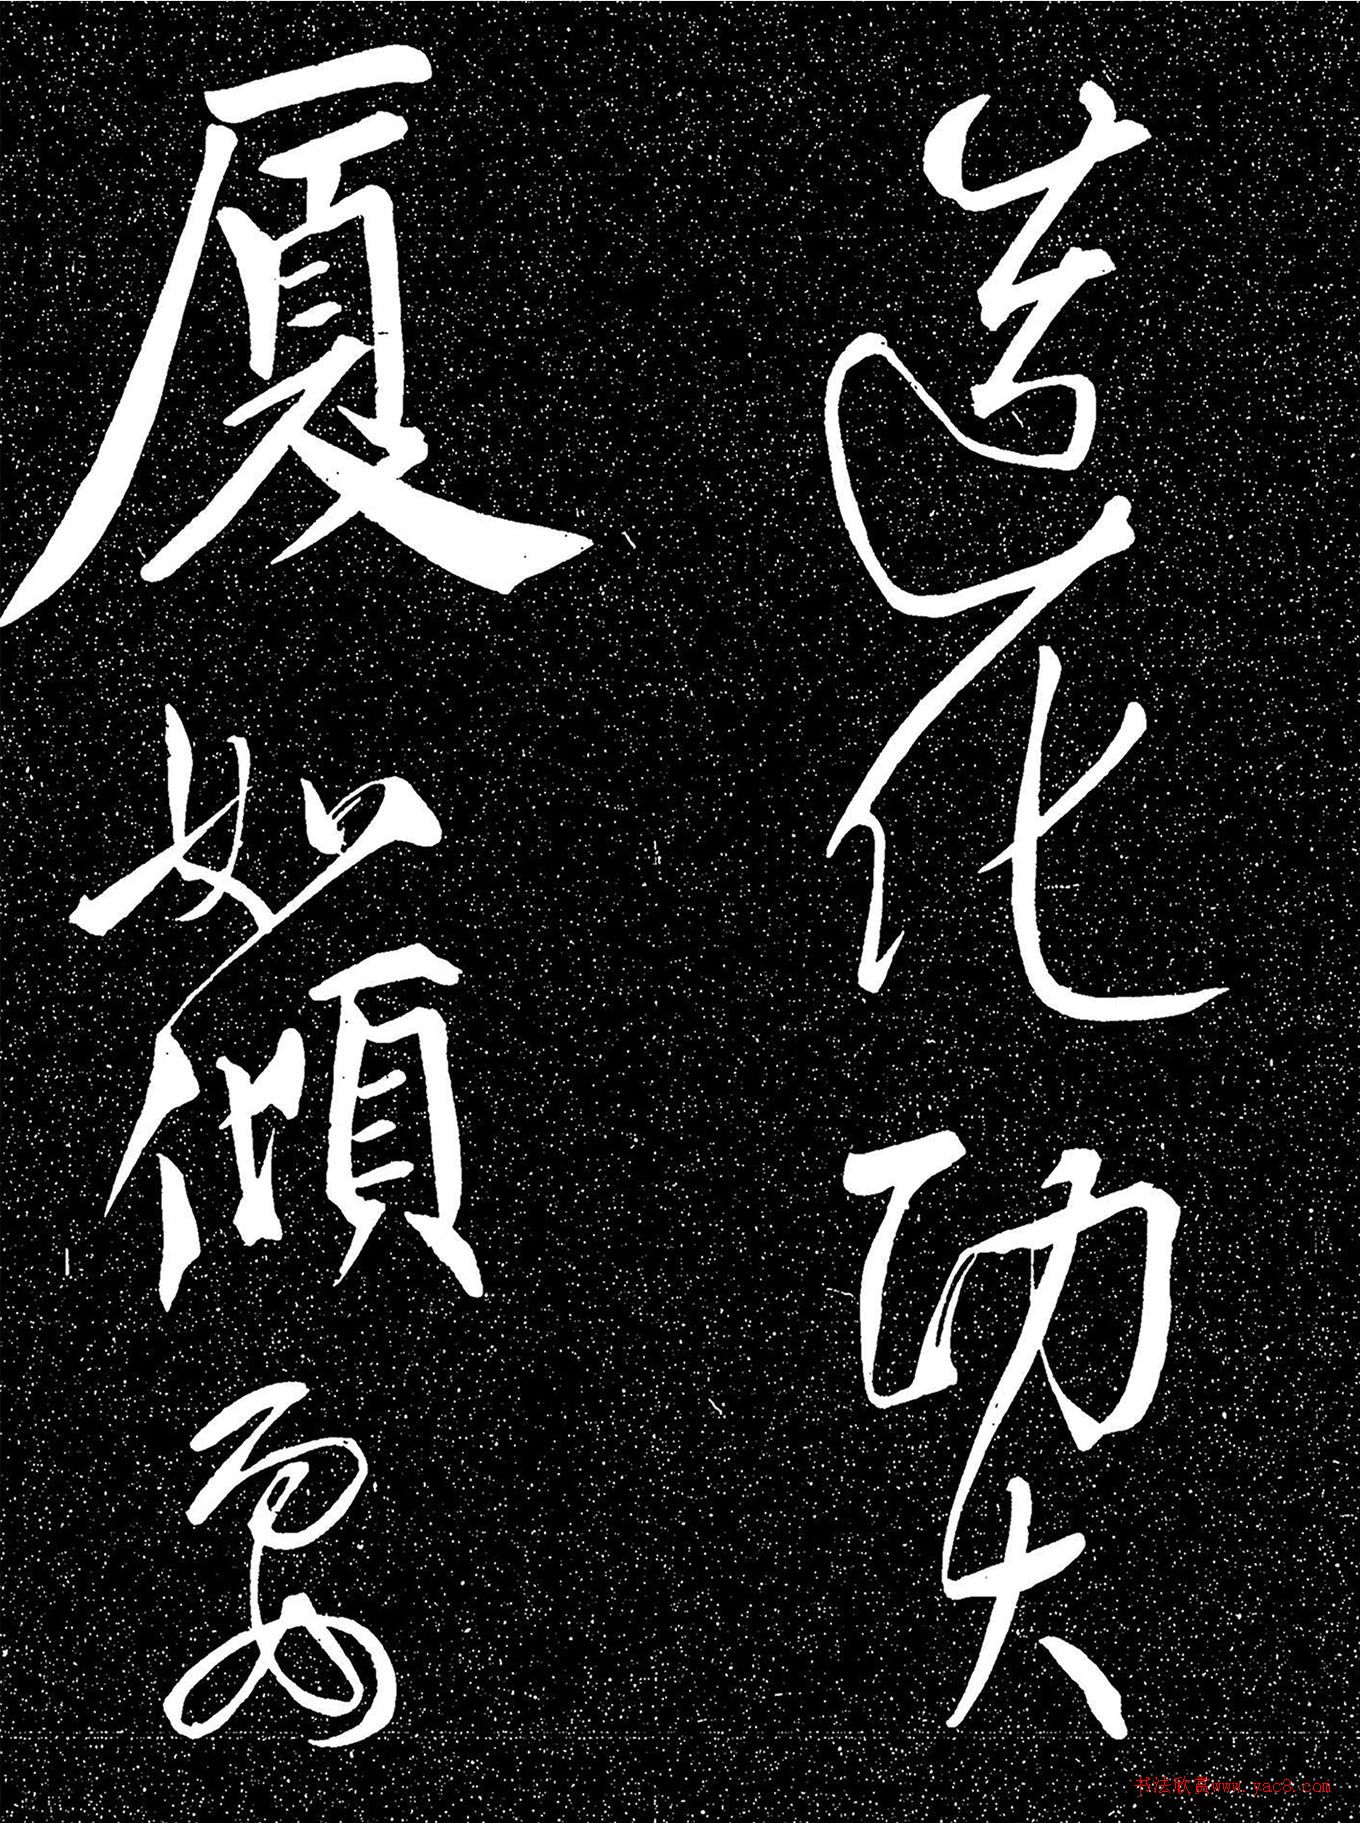 造化功大
厦如傾要
书法欣赏www.yac8.com